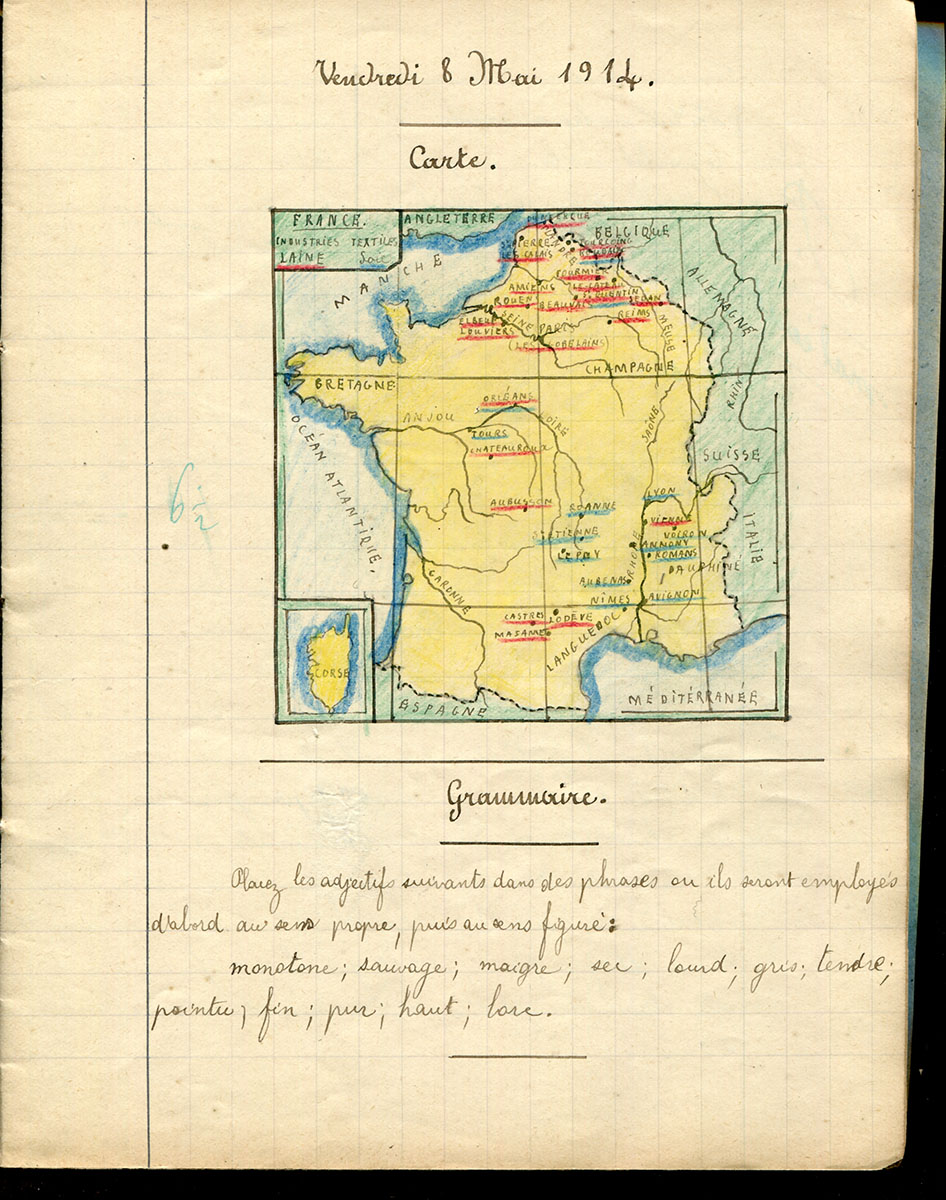 Vendredi 8 Mai 1914.
Carte.
FRANCE.
INDUSTRIES TEXTILES
LAINE Soie
ANGLETERRE
MANCHE
BELGIQUE
ALLEMAGNE
TOURCOING
ROUBAIX
FOURMIES
LE CATEAU
St QUENTIN
AMIENS
ROUEN
BEAUVAIS
SEDAN
REIMS
ELBEUF
LOUVIERS
SEINE
PARIS
(LES GOBELINS)
MEUSE
CHAMPAGNE
RHIN
BRETAGNE
ORLÉANS
ANJOU
LOIRE
TOURS
CHATEAUROUX
SAÔNE
SUISSE
OCÉAN ATLANTIQUE.
LYON
AUBUSSON
ROANNE
VIENNE
VOIRON
St ETIENNE
ANNONY
ROMANS
LE PUY
DAUPHINÉ
ITALIE
RHÔNE
GARONNE
AUBENAS
NÎMES
AVIGNON
CASTRES
LODÈVE
MASAMET
LANGUEDOC
CORSE
MÉDITÉRRANÉE
ESPAGNE
6 1/2
Grammaire.
Placez les adjectifs suivants dans des phrases ou ils seront employés
d'abord au sens propre, puis au sens figuré:
monotone; sauvage; maigre; sec; lourd; gris; tendre;
pointu; fin; pur; haut;